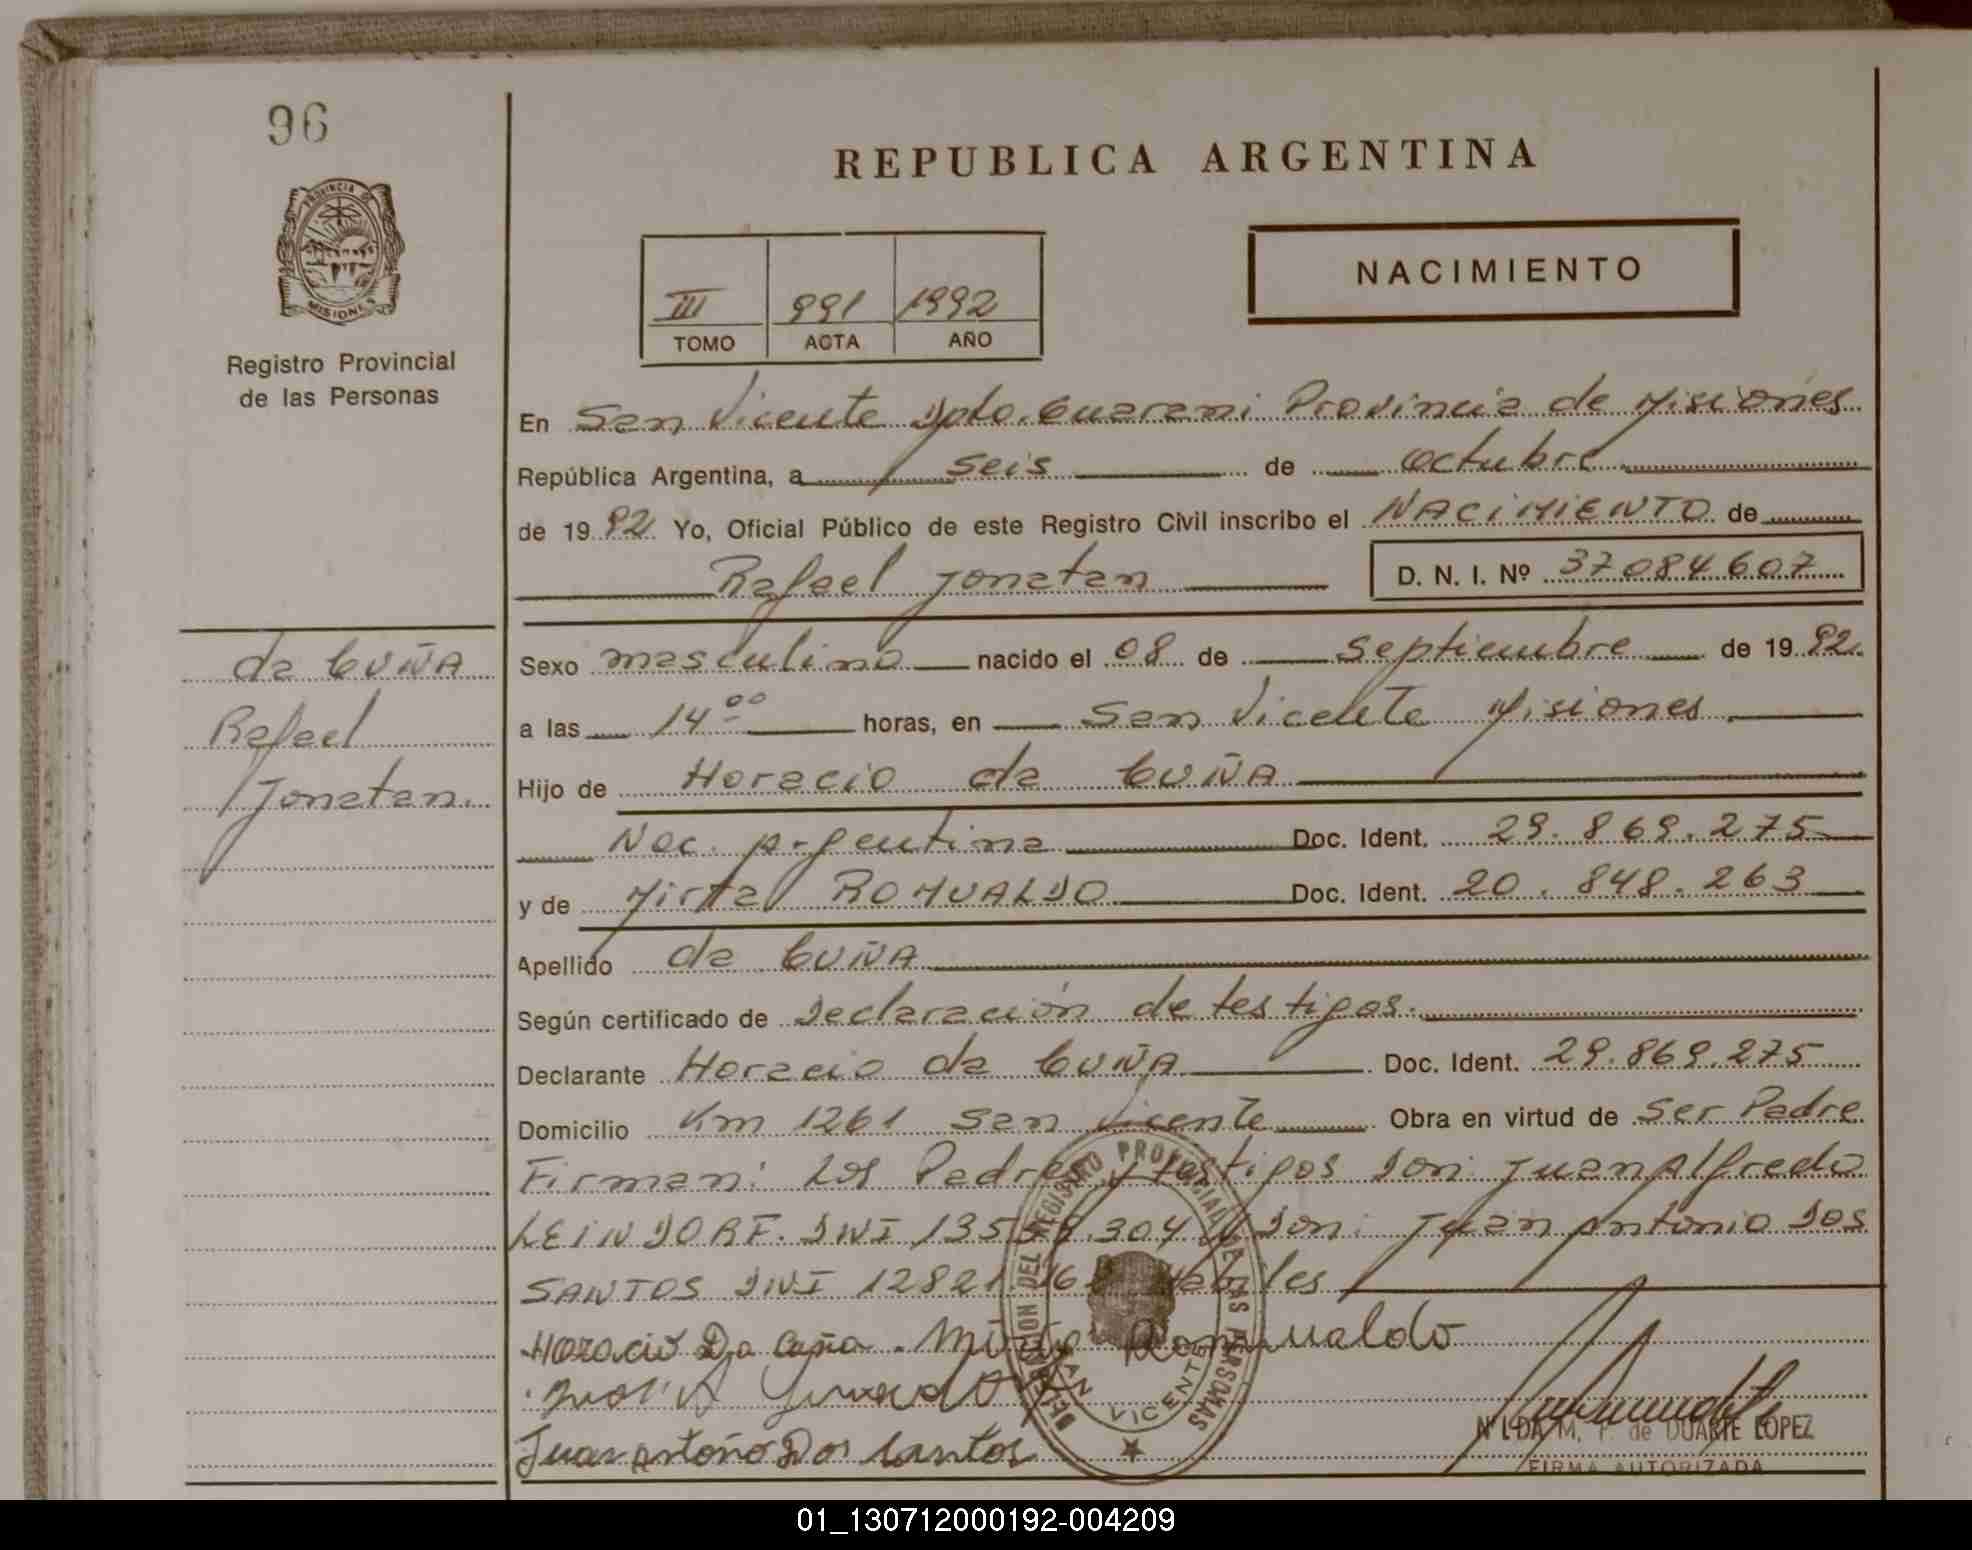 96
PROVINCIA DE
MISIONES
Registro Provincial
de las Personas
REPUBLICA ARGENTINA
III 991 1992
TOMO ACTA AÑO
NACIMIENTO
En San Vicente Dpto. Guarani Provincia de Misiones
República Argentina, a seis de octubre
de 19 92 Yo, Oficial Público de este Registro Civil inscribo el NACIMIENTO de
Rafael Jonatan D. N. I. Nº 37084607
da CUÑA
Rafael
Jonatan.
Sexo masculino nacido el 08 de septiembre de 19 92.
a las 14 00 horas, en San Vicente Misiones
Hijo de Horacio da CUÑA
Nac. Argentina Doc. Ident. 29.869.275
y de Mirta ROMUALDO Doc. Ident. 20.848.263
Apellido da CUÑA
Según certificado de Declaración de testigos.
Declarante Horacio da CUÑA Doc. Ident. 29.869.275
Domicilio Km 1261 San Vicente Obra en virtud de Ser Padre
Firman: Los Padres y testigos Don: Juan Alfredo
LEINDORF. DNI 135 .304 y Don: Juan Antonio DOS
SANTOS DNI 12821 Habiles
Horacio Da Cuña. Mirta Romualdo
Juan Antonio Dos Santos
DELEGACION DEL REGISTRO PROVINCIAL DE LAS PERSONAS
SAN VICENTE
NILDA M. F. de DUARTE LOPEZ
FIRMA AUTORIZADA
01_130712000192-004209